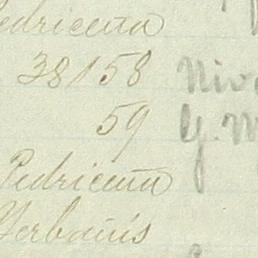 Pedricena
38158 Niv
59 G. M
Pedricena
Yerbanis